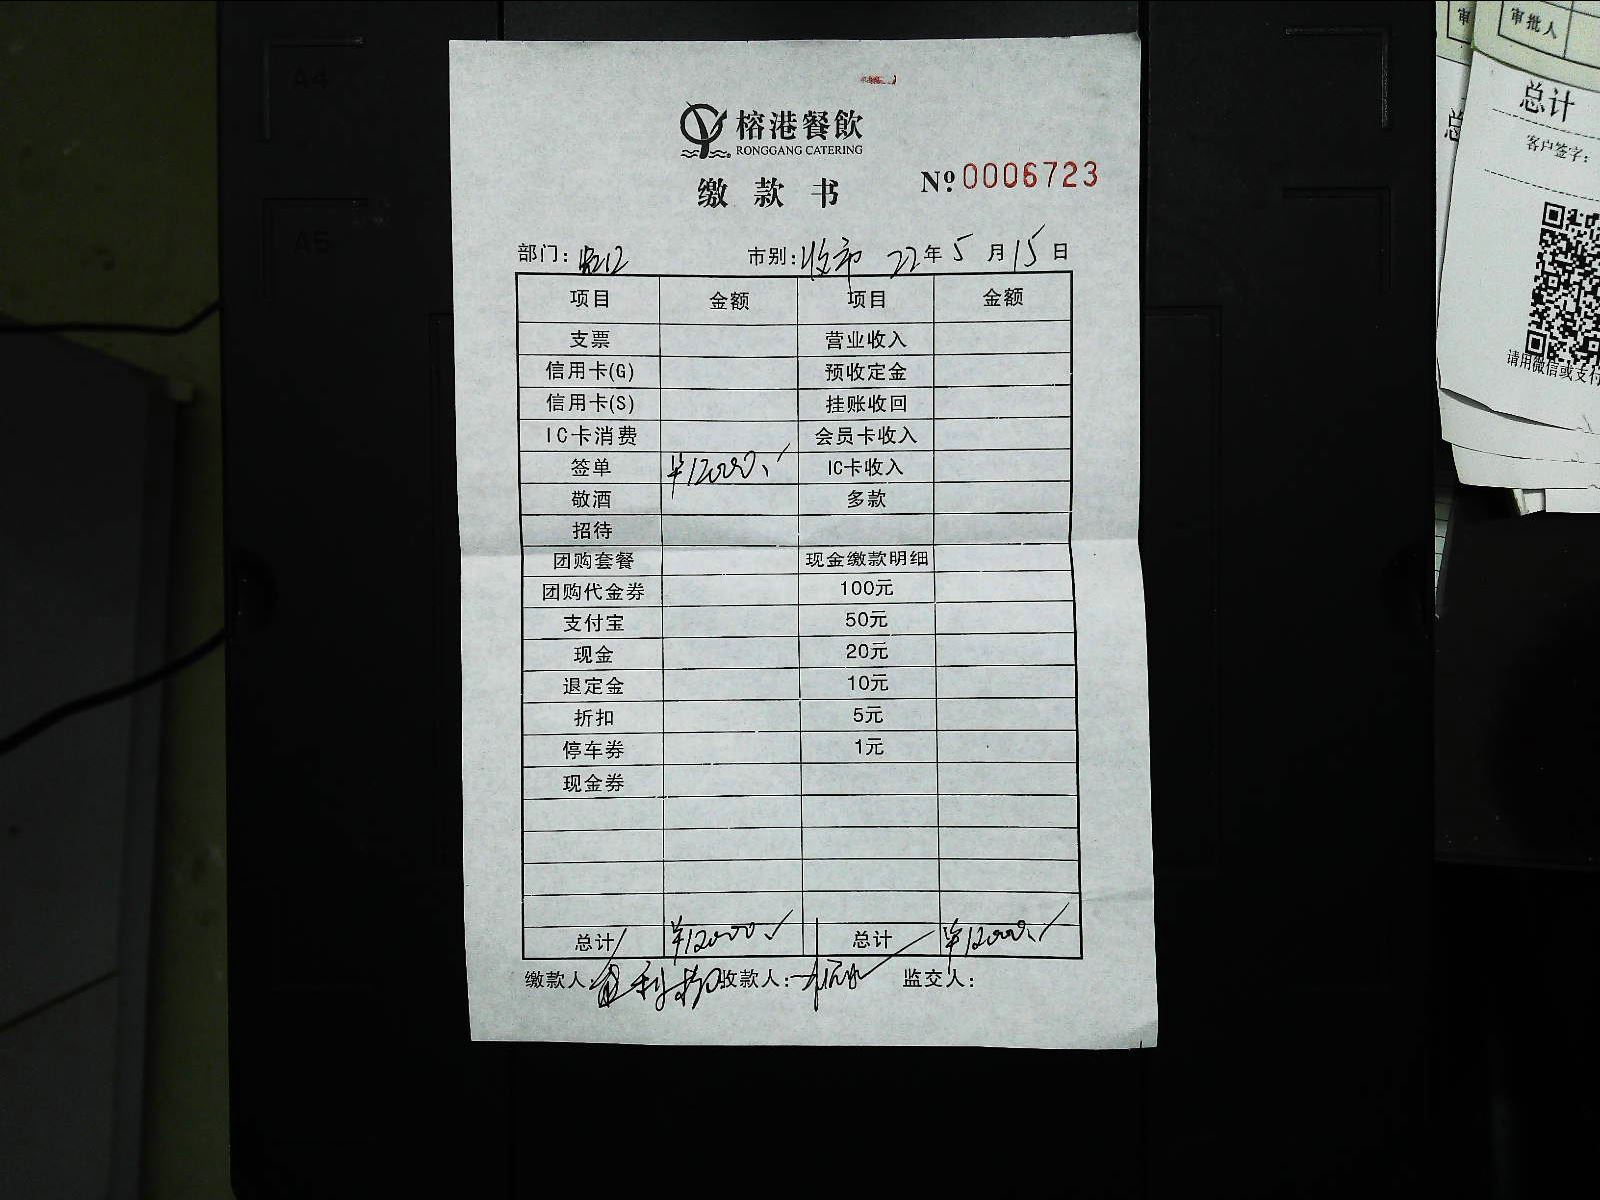 榕港餐飲
RONGGANG CATERING
缴款书 №0006723
部门: 市别: 收市 22年5月15日
项目 金额 项目 金额
支票 营业收入
信用卡(G) 预收定金
信用卡(S) 挂账收回
IC卡消费 会员卡收入
签单 ¥12000. IC卡收入
敬酒 多款
招待
团购套餐 现金缴款明细
团购代金券 100元
支付宝 50元
现金 20元
退定金 10元
折扣 5元
停车券 1元
现金券
总计 ¥12000. 总计 ¥12000.
缴款人: 收款人: 监交人:
审批人
总计
客户签字:
请用微信或支付
A4
A5